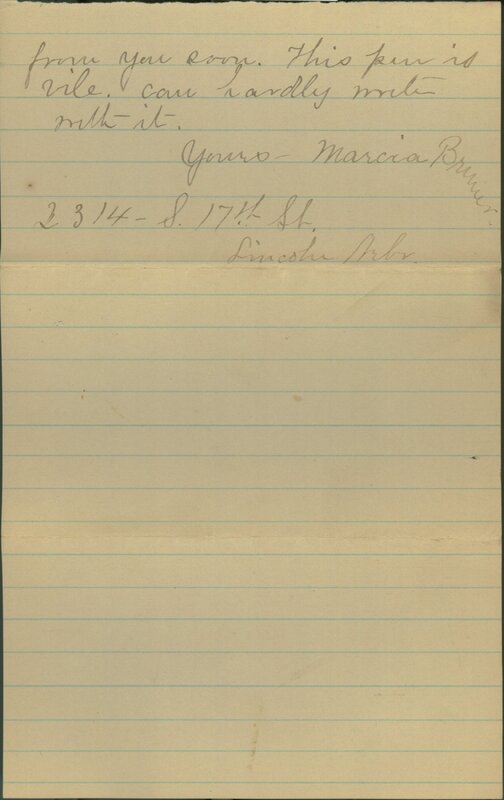 from you soon. This pen is
vile. can hardly write
with it.
Yours - Marcia Bruner.
2314 - S. 17th St.
Lincoln Nebr.